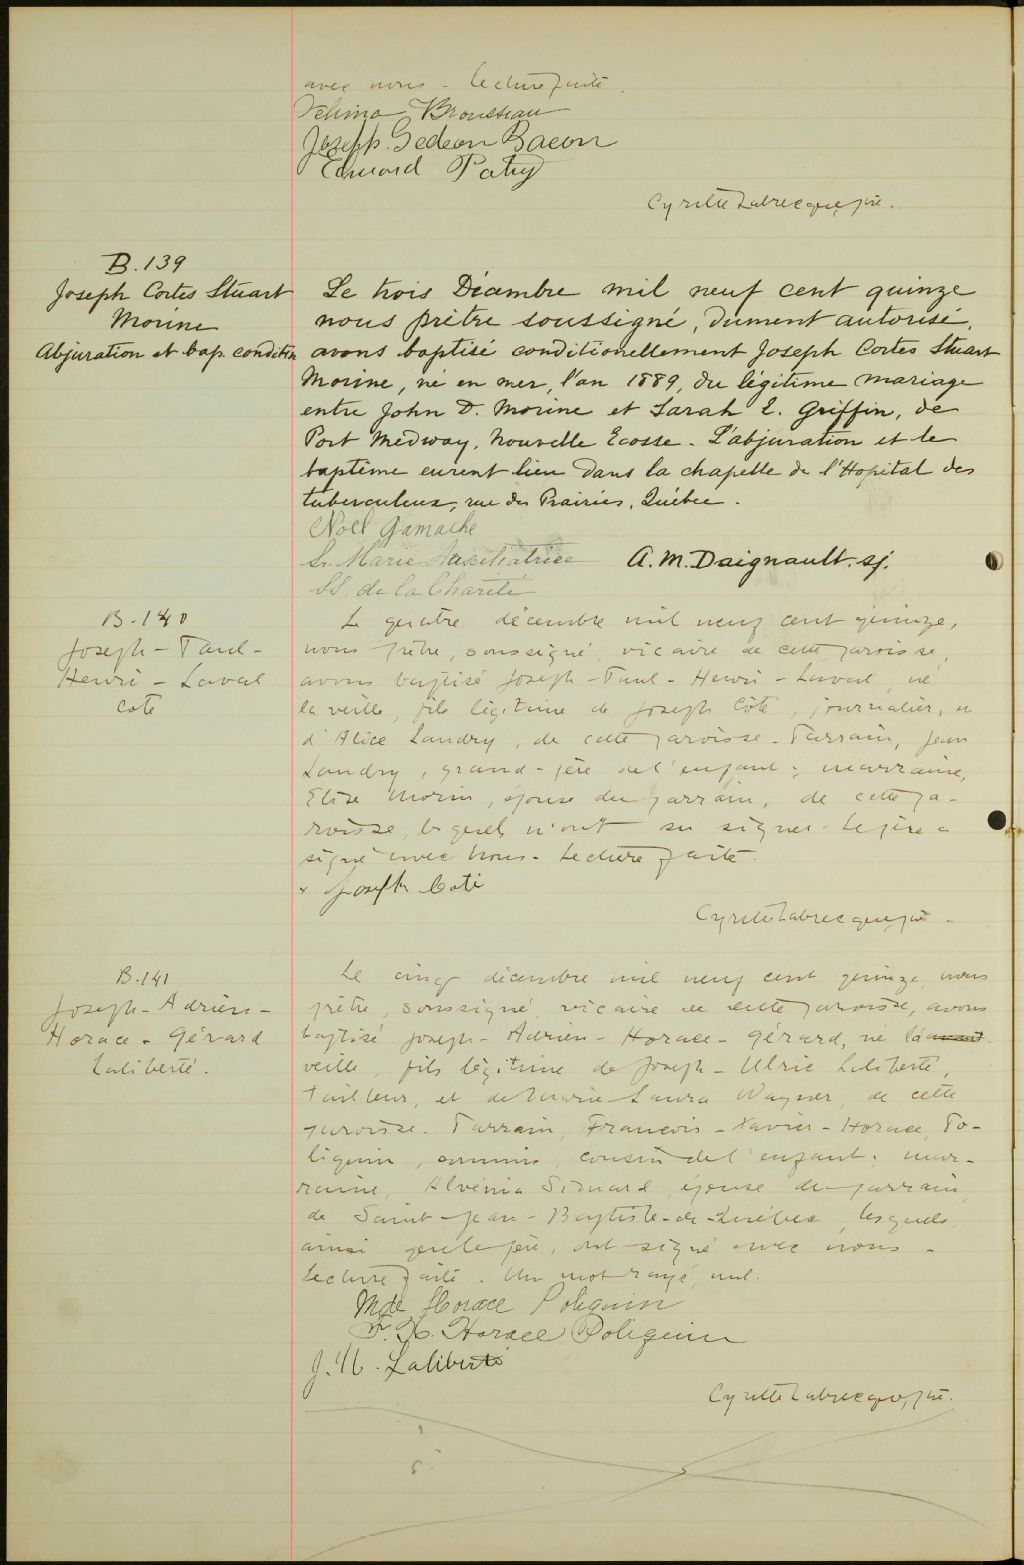 avec nous - Lecture faite.
Brousseau
Joseph Gedeon Bacon
Edouard Patry
Cyrille Labrecque, ptre.
B. 139
Joseph Cortes Stuart
Morine
Abjuration et bap. condition
Le trois Décembre mil neuf cent quinze
nous prêtre soussigné, dument autorisé,
avons baptisé conditionellement Joseph Cortes Stuart
Morine, né en mer, l'an 1889, du légitime mariage
entre John D. Morine et Sarah E. Griffin, de
Port Medway, Nouvelle Ecosse. L'abjuration et le
baptême eurent lieu dans la chapelle de l'Hopital des
tuberculeux, rue des Prairies, Québec.
Noël Gamache
Sr. Marie Auxiliatrice A. M. Daignault. sj.
SS. de la Charité
B. 140
Joseph - Paul -
Henri - Laval
Coté
Le quatre décembre mil neuf cent quinze,
nous prêtre, soussigné, vicaire de cette paroisse,
avons baptisé Joseph - Paul - Henri - Laval, né
la veille, fils légitime de Joseph Côté, journalier, et
d'Alice Landry, de cette paroisse. Parrain, Jean
Landry, grand-père de l'enfant; marraine,
Elise Morin, épouse du parrain, de cette pa-
roisse, lesquels n'ont su signer. Le père a
signé avec nous. Lecture faite.
x Joseph Coté
Cyrille Labrecque, ptre -
B. 141
Joseph - Adrien -
Horace - Gérard
Laliberté.
Le cinq décembre mil neuf cent quinze, nous
prêtre, soussigné, vicaire de cette paroisse, avons
baptisé Joseph - Adrien - Horace - Gérard, né la
veille, fils légitime de Joseph - Ulric Laliberté,
tailleur, et de Marie-Laura Wagner, de cette
paroisse. Parrain, François - Xavier - Horace Po-
liquin, commis, cousin de l'enfant; mar-
raine, Alvénia Simard, épouse du parrain,
de Saint-Jean-Baptiste-de-Québec, lesquels
ainsi que le père, ont signé avec nous -
Lecture faite. Un mot rayé nul.
Mde Horace Poliquin
F. X. Horace Poliquin
J. U. Laliberté
Cyrille Labrecque, ptre.